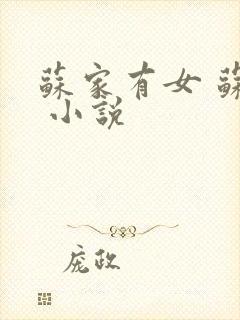 蘇家有女 蘇
小説
庞政